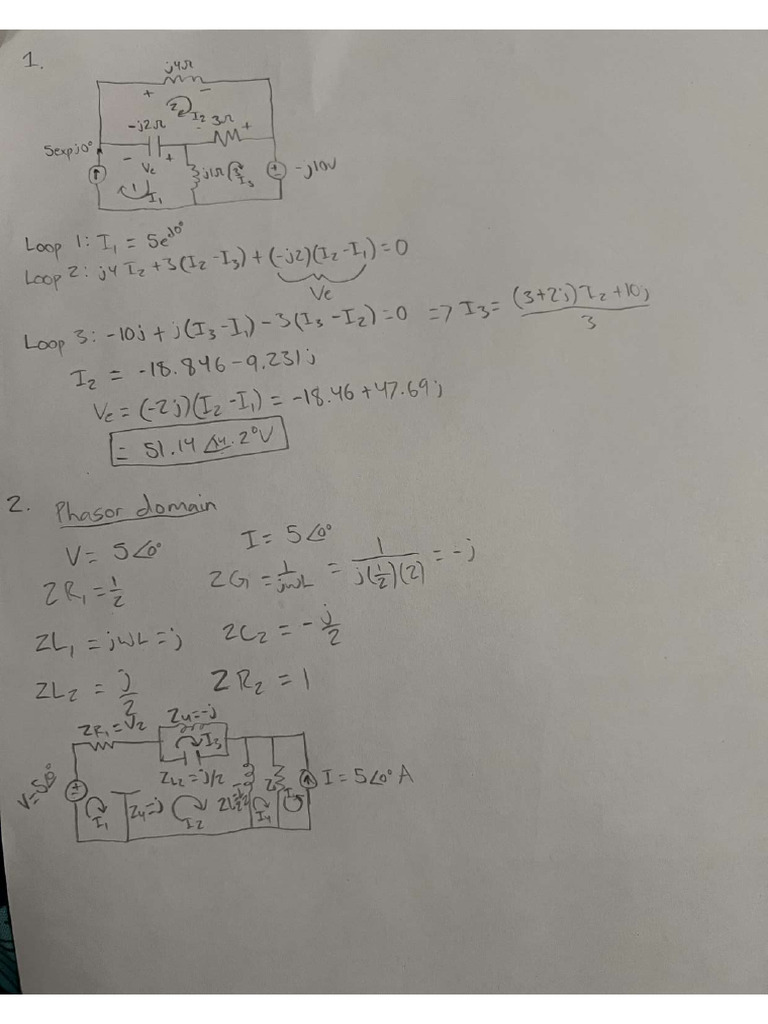 1.
j4Ω
+ -
2 I₂
-j2Ω - 3Ω +
5expj0°
- Vc +
j1Ω I₃
+ -j10V
I₁
Loop 1: I₁ = 5e^j0°
Loop 2: j4 I₂ + 3(I₂ - I₃) + (-j2)(I₂ - I₁) = 0
Vc
Loop 3: -10j + j(I₃ - I₁) - 3(I₃ - I₂) = 0 => I₃ = ((3+2j)I₂ + 10j)/3
I₂ = -18.846 - 9.231j
Vc = (-2j)(I₂ - I₁) = -18.46 + 47.69j
= 51.14 ∠111.2° V
2. Phasor domain
V = 5∠0° I = 5∠0°
ZR₁ = 1/2 ZG = 1/jwL = 1/(j(1/2)(2)) = -j
ZL₁ = jwL = j ZC₂ = -j/2
ZL₂ = j/2 ZR₂ = 1
ZR₁ = 1/2 Z4 = -j
I₃
V = 5∠0° ZL2 = j/2 I = 5∠0° A
I₁ Z4 = j I₂ I₄